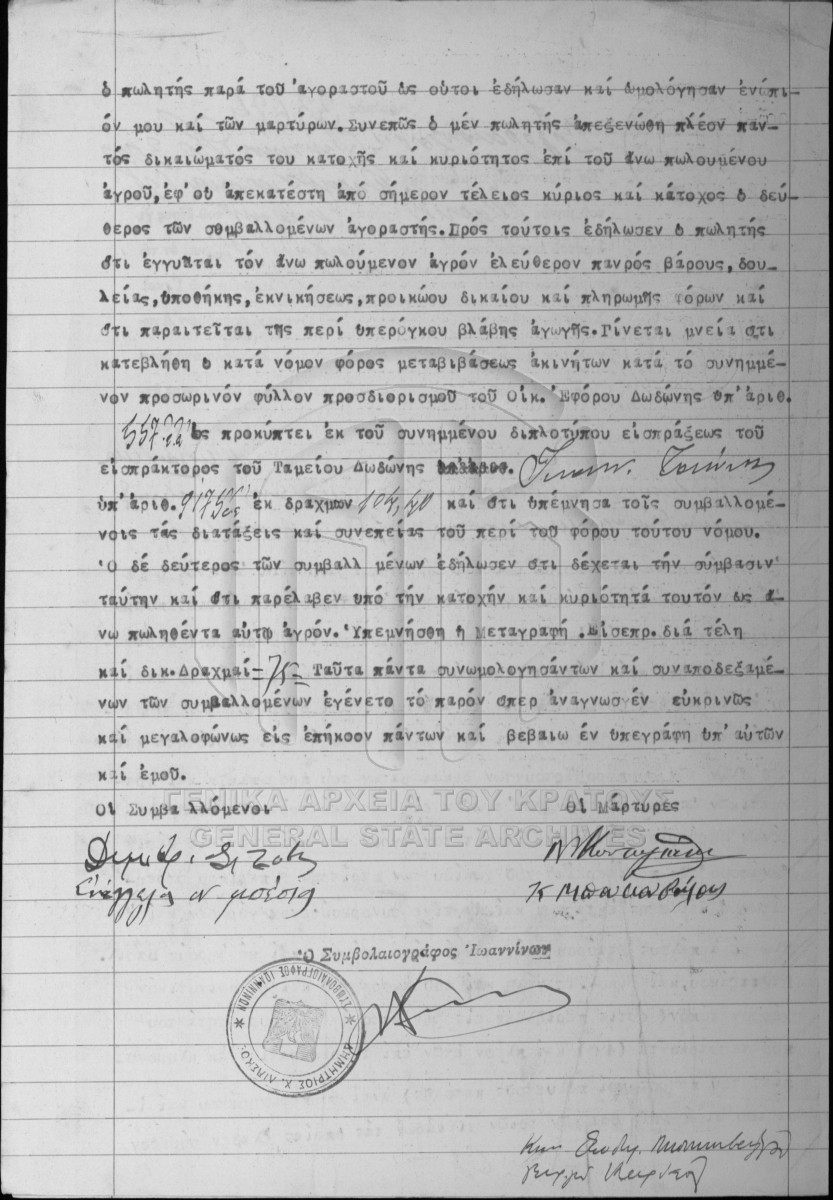 ὁ πωλητής παρά τοῦ ἀγοραστοῦ ὡς οὗτοι ἐδήλωσαν καί ὡμολόγησαν ἐνώπι-
όν μου καί τῶν μαρτύρων. Συνεπῶς ὁ μέν πωλητής ἀπεξενώθη πλέον παν-
τός δικαιώματός του κατοχῆς καί κυριότητος ἐπί τοῦ ἄνω πωλουμένου
ἀγροῦ, ἐφ' οὗ ἀπεκατέστη ἀπό σήμερον τέλειος κύριος καί κάτοχος ὁ δεύ-
θερος τῶν συμβαλλομένων ἀγοραστής. Πρός τούτοις ἐδήλωσεν ὁ πωλητής
ὅτι ἐγγυᾶται τόν ἄνω πωλούμενον ἀγρόν ἐλεύθερον πανρός βάρους, δου-
λείας, ὑποθήκης, ἐκνικήσεως, προικώου δικαίου καί πληρωμῆς φόρων καί
ὅτι παραιτεῖται τῆς περί ὑπερόγκου βλάβης ἀγωγῆς. Γίνεται μνεία ὅτι
κατεβλήθη ὁ κατά νόμον φόρος μεταβιβάσεως ἀκινήτων κατά τό συνημμέ-
νον προσωρινόν φύλλον προσδιορισμοῦ τοῦ Οἰκ. Ἐφόρου Δωδώνης ὑπ' ἀριθ.
ὡς προκύπτει ἐκ τοῦ συνημμένου διπλοτύπου εἰσπράξεως τοῦ
εἰσπράκτορος τοῦ Ταμείου Δωδώνης
ὑπ' ἀριθ. ἐκ δραχμῶν 104,40 καί ὅτι ὑπέμνησα τοῖς συμβαλλομέ-
νοις τάς διατάξεις καί συνεπείας τοῦ περί τοῦ φόρου τούτου νόμου.
Ὁ δέ δεύτερος τῶν συμβαλλ μένων ἐδήλωσεν ὅτι δέχεται τήν σύμβασιν
ταύτην καί ὅτι παρέλαβεν ὑπό τήν κατοχήν καί κυριότητά τουτόν ὡς ἄ-
νω πωληθέντα αὐτῷ ἀγρόν. Ὑπεμνήσθη ἡ Μεταγραφή. Εἰσεπρ. διά τέλη
καί δικ. Δραχμαί =75= Ταῦτα πάντα συνωμολογησάντων καί συναποδεξαμέ-
νων τῶν συμβαλλομένων ἐγένετο τό παρόν ὅπερ ἀναγνωσθέν εὐκρινῶς
καί μεγαλοφώνως εἰς ἐπήκοον πάντων καί βεβαιω ἐν ὑπεγράφη ὑπ' αὐτῶν
καί ἐμοῦ.
ΓΕΝΙΚΑ ΑΡΧΕΙΑ ΤΟΥ ΚΡΑΤΟΥΣ
GENERAL STATE ARCHIVES
Οἱ Συμβα λλόμενοι Οἱ Μάρτυρες
Ὁ Συμβολαιογράφος Ἰωαννίνων
ΣΥΜΒΟΛΑΙΟΓΡΑΦΟΣ ΙΩΑΝΝΙΝΩΝ
ΔΗΜΗΤΡΙΟΣ Χ.